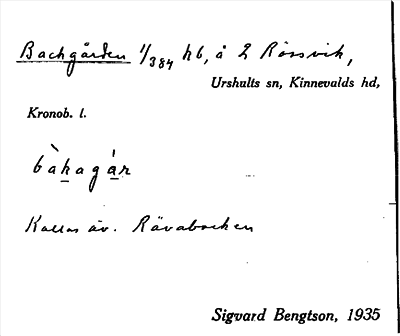 Backgården 1/384 hb, å 2 Rössvik,
Urshults sn, Kinnevalds hd,
Kronob. l.
bàkagár
Kallas äv. Rävabacken
Sigvard Bengtson, 1935